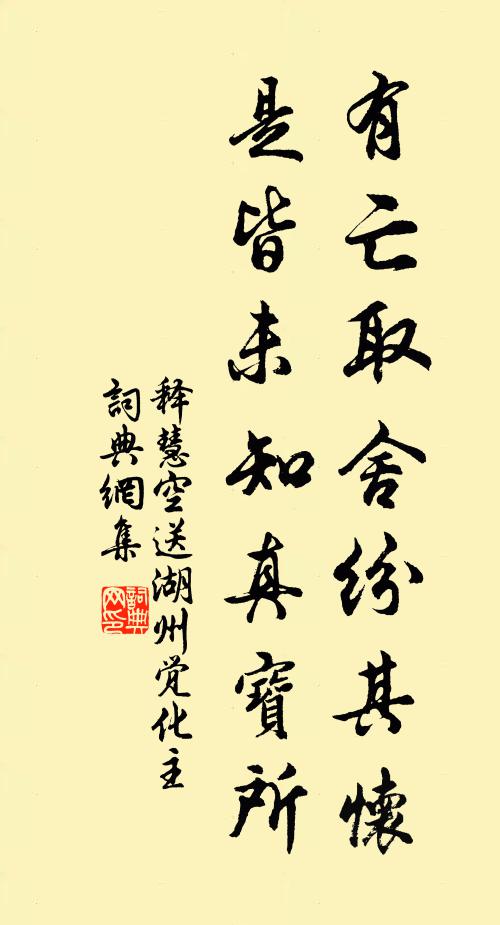 有亡取舍纷其懷
是皆未知真寶所
释慧空送湖州觉化主
詞典網集
詞典网印